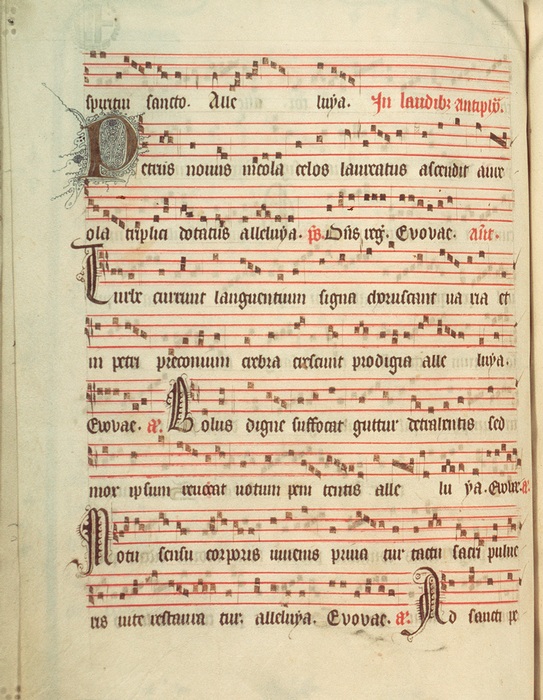 spiritu sancto. Alle luya. In laudibz antipho.
Petrus nouus nicola celos laureatus ascendit aure
ola triplici dotatus alleluya. ps. Dns reg. Evovae. Ant.
Turbe currunt languentium signa choruscant ua ria et
in petri preconium crebra crescunt prodigia alle luya.
Evovae. a. Dolus digne suffocat guttur detralentis sed
mox ipsum reuocat uotum peni tentis alle lu ya. Evovae. a.
Motu sensu corporis iuuenis priua tur tactu sacri pulue
ris uite restaura tur. alleluya. Evovae. a. Ad sancti pe